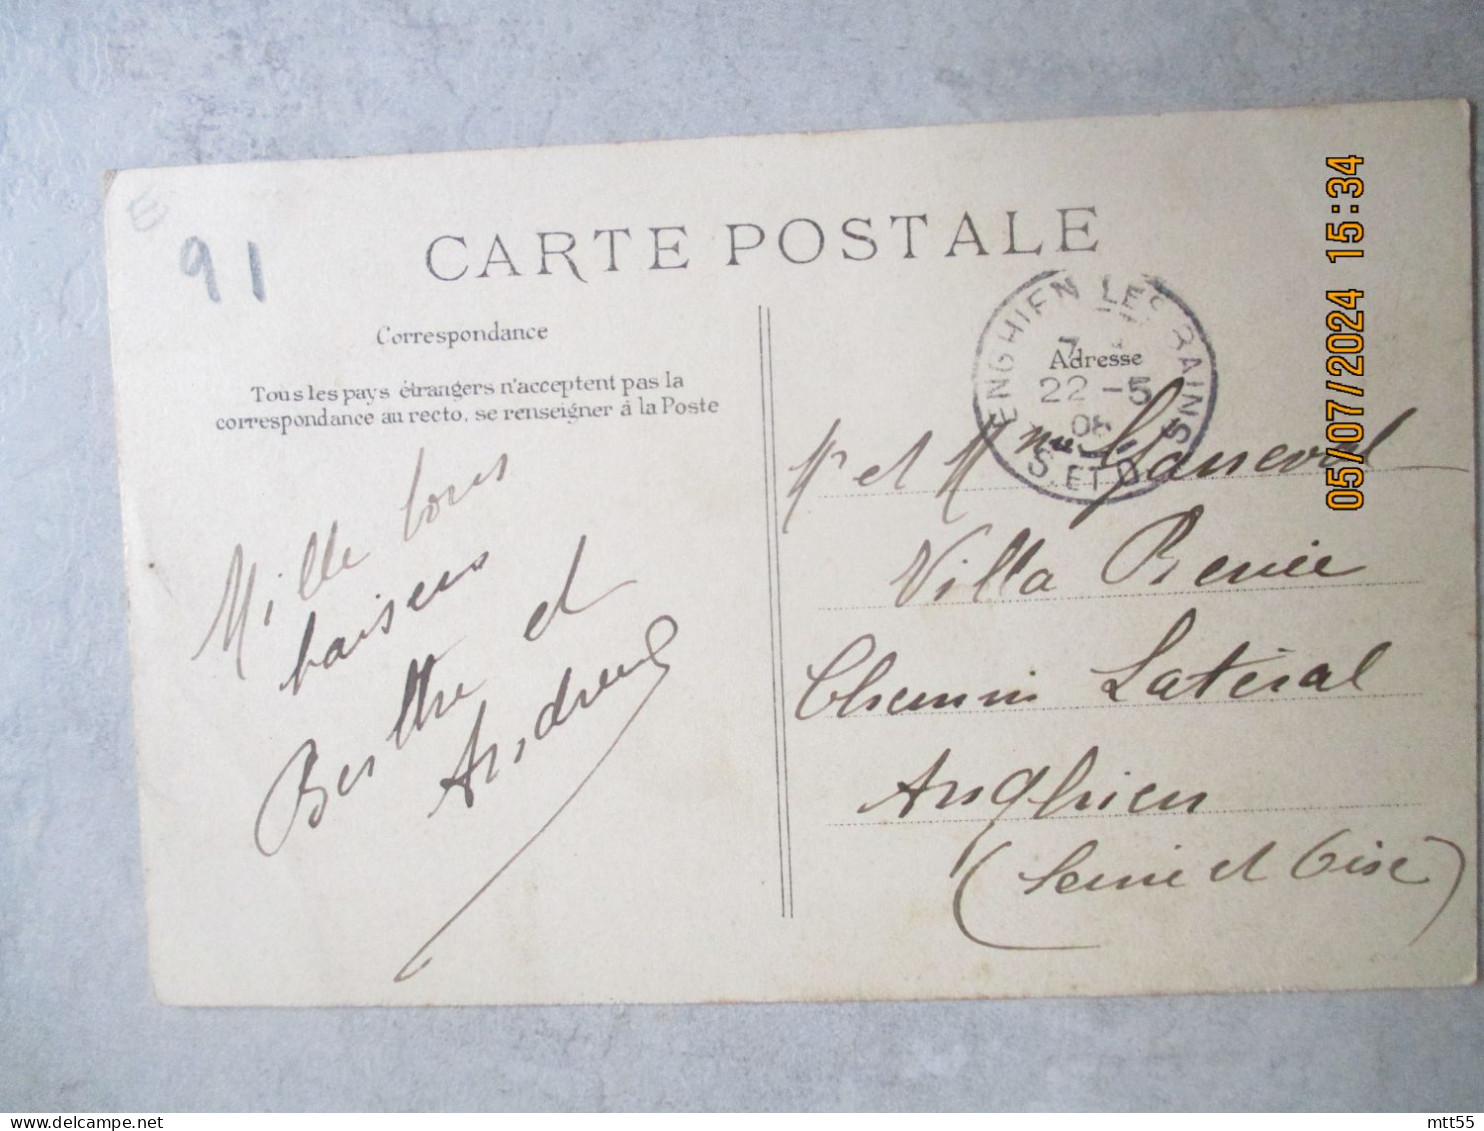 E
91
CARTE POSTALE
Correspondance
Tous les pays étrangers n'acceptent pas la
correspondance au recto, se renseigner à la Poste
Mille bons
baisers
Berthe et
Andrée
ENGHIEN LES BAINS
7
22 -5
08
S. ET O.
Adresse
Mr et Mme Ganneval
Villa Renée
Chemin Latéral
Anghien
(Seine et Oise)
05/07/2024 15:34
delcampe.net
mtt55